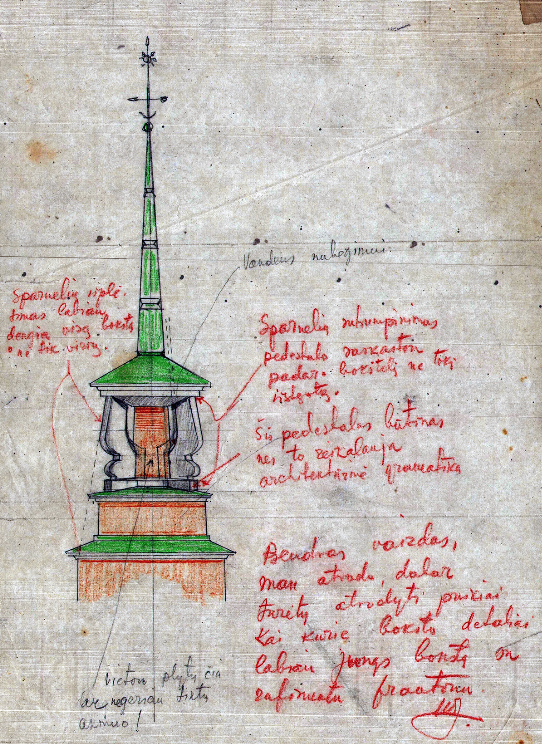 Vandens nubėgimui.
Sparnelių
labiau
dengia visą bokštą
o ne tik viršų.
Sparnelių sutrumpinimas
pedestalo
padar. bokštelį ne tokį
ištęstą.
Šis pedestalas būtinas
nes to reikalauja
architektūrinė gramatika
Bendras vaizdas,
man atrodo, dabar
turėtų atrodyti puikiai
Kai kurie bokšto detalės
labiau jungs bokštą su
frontonu.
vieton plytų čia
ar negeriau tiktų